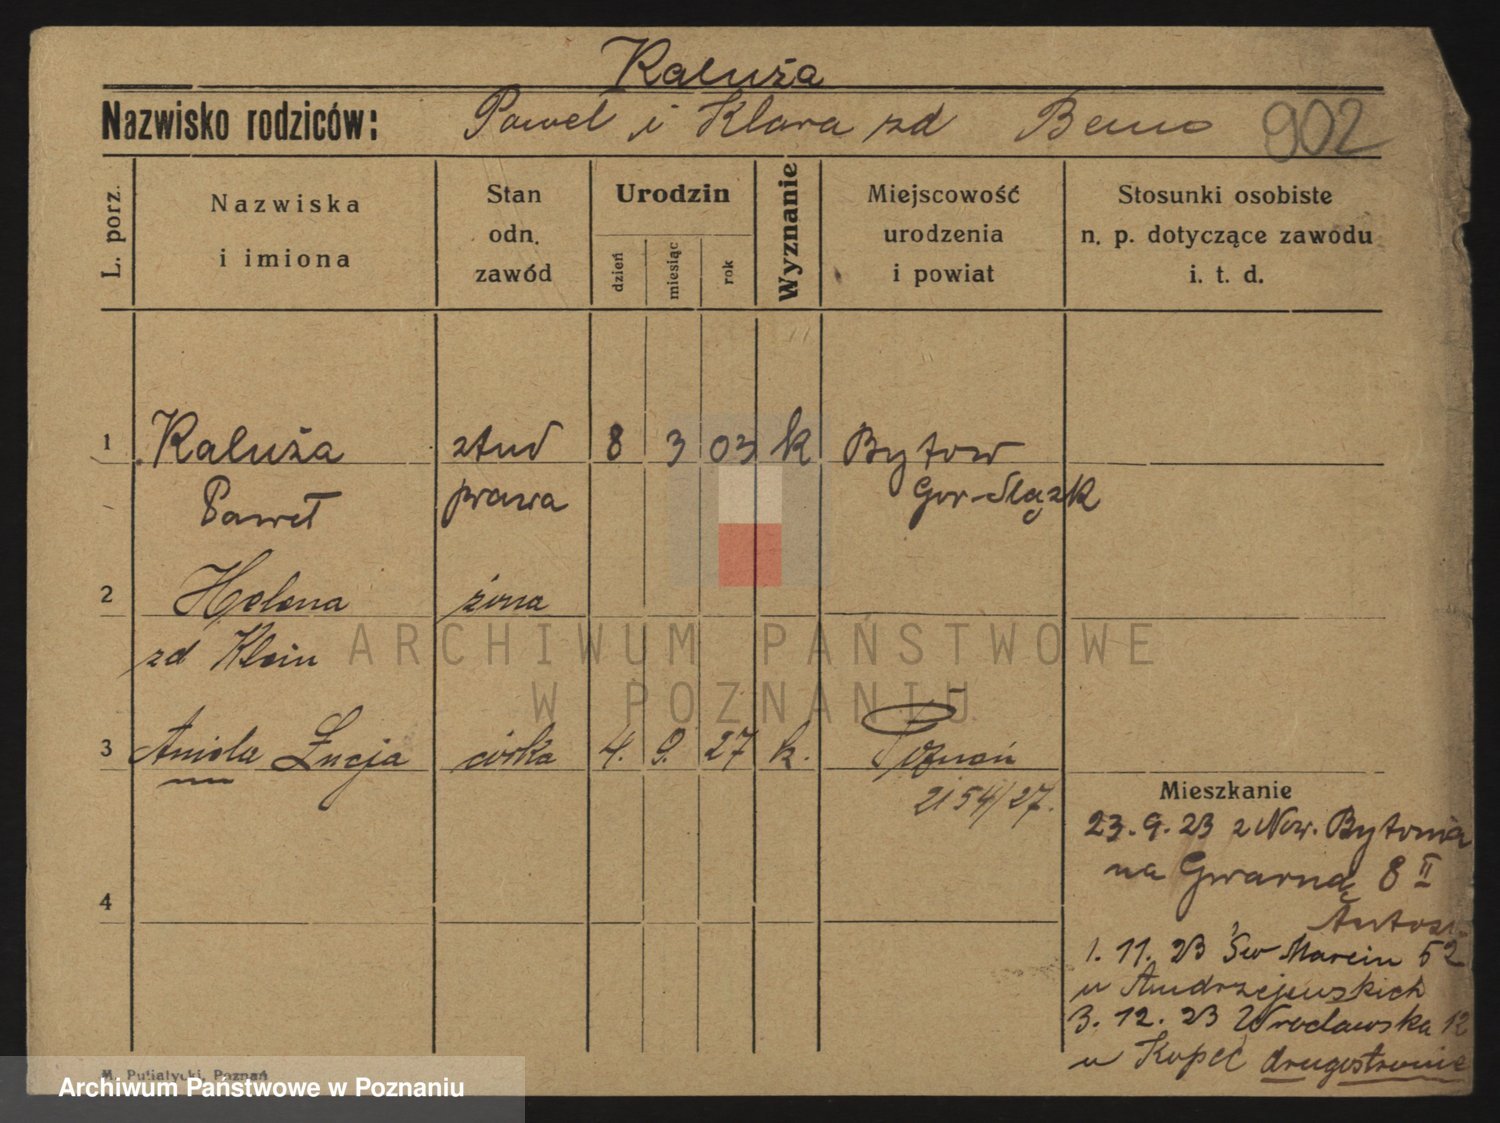 Kaluża
Nazwisko rodziców: Pawel i Klara zd Bemo 902
L. porz.
Nazwiska
i imiona
Stan
odn.
zawód
Urodzin
dzień
miesiąc
rok
Wyznanie
Miejscowość
urodzenia
i powiat
Stosunki osobiste
n. p. dotyczące zawodu
i. t. d.
1 Kaluża stud 8 3 03 k Bytow
Paweł prawa Gor-Slązk
2 Helena żona
zd Klein
ARCHIWUM PAŃSTWOWE
W POZNANIU
3 Aniela Łucja córka 4. 9. 27 k. Poznań
2154/27.
Mieszkanie
23. 9. 23 z Now. Bytomia
na Gwarną 8 II
4
1. 11. 23 Św Marcin 52
u Andrzejewskich
3. 12. 23 Wrocławska 12
u Kopeć drugostronie
M. Putiatycki, Poznań
Archiwum Państwowe w Poznaniu